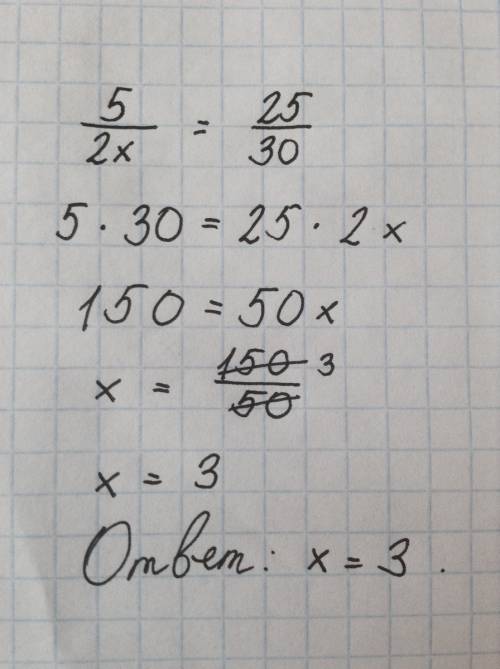 5/2x = 25/30
5 · 30 = 25 · 2x
150 = 50x
x = 150/50 3
x = 3
Ответ: x = 3.